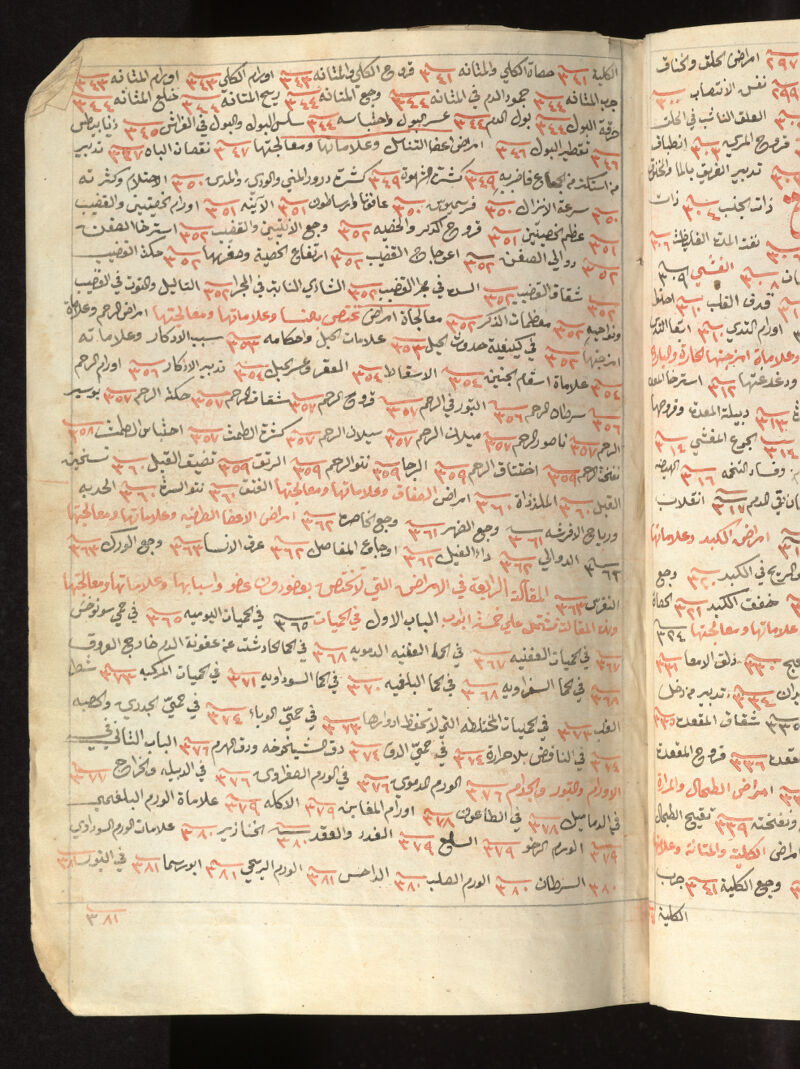 الكلية ٣٤١ حصاة الكلي والمثانه ٣٤١ قروح الكلي والمثانه ٣٤٣ اورام الكلي ٣٤٣ اورام المثانه ٣٤٣
جرب المثانه ٣٤٤ جمود الدم في المثانه ٣٤٤ وجع المثانه ٣٤٤ ريح المثانة ٣٤٤ خلع المثانه ٣٤٤
حرقة البول ٣٤٤ بول الدم ٣٤٤ عسر البول واحتباسه ٣٤٤ سلس البول والبول في الفراش ٣٤٥ ذيابيطس
٣٤٦ تقطير البول ٣٤٦ امراض اعضا التناسل وعلاماتها ومعالجتها ٣٤٧ نقصان الباه ٣٤٧ تدبير
من استكثر من الجماع فاضر به ٣٤٩ كثرت الشهوة ٣٤٩ كثرت درور المني والودي والمدى ٣٥٠ الاحتلام وكثرته
٣٥٠ سرعة الانزال ٣٥٠ فرسيموس ٣٥٠ الابنه ٣٥١ اورام الخصيتين والقضيب
٣٥١ عظم الخصيتين ٣٥١ قروح الذكر والخصيه ٣٥٢ وجع الانثيين والقضيب ٣٥٢ استرخا الصفن
٣٥٢ دوالي الصفن ٣٥٢ اعوجاج القضيب ٣٥٢ ارتفاع الخصية وصغرها ٣٥٢ حكة القضيب
٣٥٢ شقاق القضيب ٣٥٢ السدد في مجرى القضيب ٣٥٢ التاليل والتوت في القضيب
ونواحيه ٣٥٢ معظمات الذكر ٣٥٢ معالجاة امراض تختص بالنسا وعلاماتها ومعالجتها امراض الرحم وعلاماة
امزجتها ٣٥٣ في كيفية حدوث الحبل ٣٥٣ علامات الحبل واحكامه ٣٥٣ سبب الاذكار وعلاماته
٣٥٤ علاماة اسقام الجنين ٣٥٤ الاسقاط ٣٥٤ العقر وعسر الحبل ٣٥٤ تدبير الاذكار ٣٥٦ اورام الرحم
٣٥٦ سرطان الرحم ٣٥٦ البثور في الرحم ٣٥٧ قروح الرحم ٣٥٧ شقاق الرحم ٣٥٧ حكة الرحم ٣٥٧ بوسير
الرحم ٣٥٧ ناصور الرحم ٣٥٧ ميلان الرحم ٣٥٧ سيلان الرحم ٣٥٧ كثرة الطمث ٣٥٧ احتباس الطمث ٣٥٨
نفخة الرحم ٣٥٩ اختناق الرحم ٣٥٩ الرجا ٣٥٩ نتو الرحم ٣٥٩ الرتق ٣٥٩ تضيق القبل ٣٦٠ تسخين
القبل ٣٦٠ الملذذاة ٣٦٠ امراض الصفاق وعلاماتها ومعالجتها الفتق ٣٦٠ نتو السرة ٣٦٠ الحدبه
ورياح الافرسة ٣٦١ وجع الظهر ٣٦١ وجع الخاصره ٣٦٢ امراض الاعضا الطرفيه وعلاماتها ومعالجتها
٣٦٢ الدوالي ٣٦٢ داء الفيل ٣٦٢ اوجاع المفاصل ٣٦٢ عرق الانسا ٣٦٣ وجع الورك ٣٦٣
النقرس ٣٦٣ المقالة الرابعة في الامراض التي لا تختص بعضو دون عضو واسبابها وعلاماتها ومعالجتها
وهذه المقالة تشتمل على خمسة ابواب الباب الاول في الحميات ٣٦٥ في الحميات اليوميه ٣٦٥ في حمى سونوخس
٣٦٧ في حميات العفنيه ٣٦٧ في الحما العفنيه الدمويه ٣٦٨ في الحما الحادثت عن عفونة الدم خارج العروق
٣٦٨ في الحما الصفراويه ٣٦٨ في الحما البلغميه ٣٧٠ في الحما السوداويه ٣٧١ في حميات المركبه ٣٧٣ شطر
الغب ٣٧٣ في الحميات المختلطه التي لا تحفظ ادوارها ٣٧٣ في حمي الوباء ٣٧٤ في حمي الجدري والحصبه
٣٧٤ في النافض بلا حرارة ٣٧٤ في حمي الدق ٣٧٤ دق الشيخوخه ودق الهرم ٣٧٦ الباب الثاني في
الاورام والبثور والجذام ٣٧٦ الورم الدموي ٣٧٦ في الورم الصفراوي ٣٧٦ في الدبيله والخراج ٣٧٧
في الدماميل ٣٧٨ في الطاعون ٣٧٨ اورام المغابن ٣٧٩ الاكله ٣٧٩ علاماة الورم البلغمي
٣٧٩ الورم الرخو ٣٧٩ السلع ٣٧٩ الغدد والعقد ٣٨٠ الخنازير ٣٨٠ علامات الورم السوداوي
٣٨٠ السرطان ٣٨٠ الورم الصلب ٣٨٠ الداحس ٣٨١ الورم الريحي ٣٨١ ابورسما ٣٨١ في البثور ٣٨١
٣٨١
٢٩٧ امراض الحلق والخناق
٢٩٩ نفس الانتصاب ٣٠٠
العلق الناشب في الحلق
قروح المري ٣٠٣ انطباق
تدبير الغريق بالما والمخنوق
ذات الجنب ٣٠٤ ذات
نفث المدة الغليظه ٣٠٦
٣٠٨ الغشي ٣٠٩
قذف القلب ٣١٠
اورام الثدي ٣١٠
وعلاماة امزجتها الحارة والباردة
ودغدغتها ٣١٢ استرخا المعده
٣١٣ دبيلة المعدة وقروحها
٣١٤ الجوع المغشي ٣١٤
وفساد التخمه ٣١٦ الهيضه
في الدم ٣١٧ انقلاب
امراض الكبد وعلاماتها
الريح في الكبد ٣٢٠ وجع
ضعف الكبد ٣٢٢
علاماتها ومعالجتها ٣٢٤
٣٣٠ زلق الامعا ٣٣١
٣٣٤ تدبير من دخل
٣٣٥ شقاق المقعدة ٣٣٥
٣٣٦ قروح المقعدة
امراض الطحال والمرارة
ونفخته ٣٣٩ تقيح الطحال
امراض الكلية والمثانه وعلاماة
وجع الكلية ٣٤١ جرب
الكلية